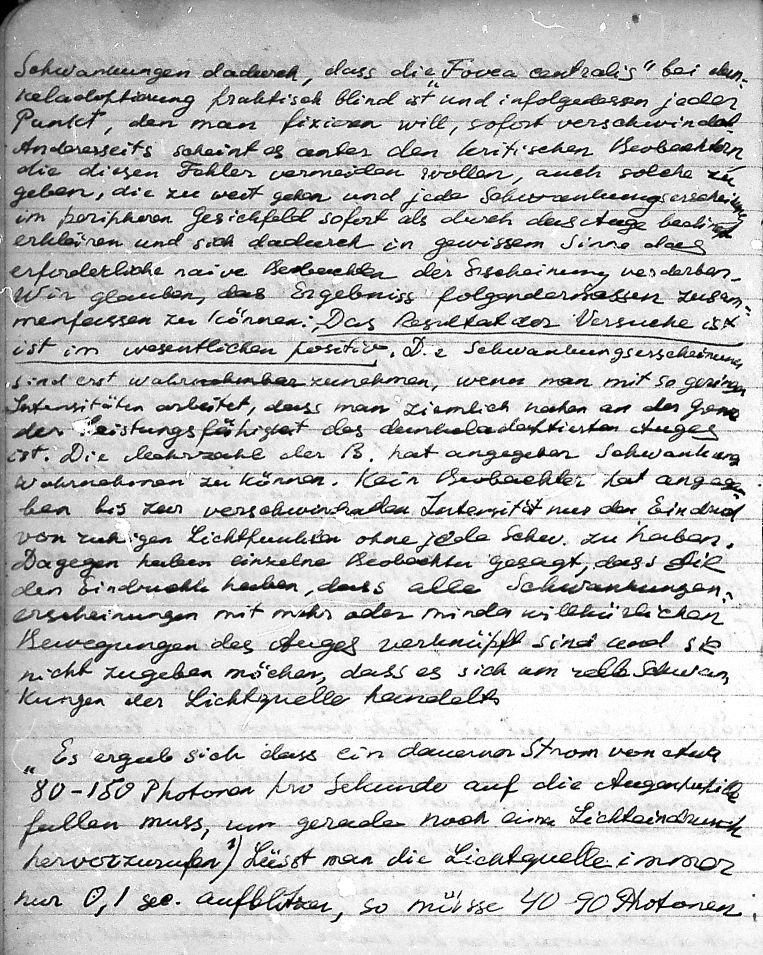 Schwankungen dadurch, dass die „Fovea centralis" bei dun-
keladoptierung praktisch blind ist" und infolgedessen jeder
Punkt, den man fixieren will, sofort verschwindet
Andererseits scheint es unter den kritischen Beobachtern
die diesen Fehler vermeiden wollen, auch solche zu
geben, die zu weit gehen und jede Schwankungserscheinung
im peripheren Gesichfeld sofort als durch das Auge bedingt
erklären und sich dadurch in gewissem Sinne das
erforderliche naive Beobachten der Erscheinung verderben.
Wir glauben, das Ergebniss folgendermassen zusam-
menfassen zu können: „Das Resultat der Versuche ist
ist im wesentlichen positiv. Die Schwankungserscheinungen
sind erst wahr zunehmen, wenn man mit so geringen
Intensitäten arbeitet, dass man ziemlich nahen an der Grenze
der Leistungsfähigkeit des dunkeladoptierten Auges
ist. Die Mehrzahl der B. hat angegeben Schwankung
wahrnehmen zu können. Kein Beobachter hat angege-
ben bis zur verschwindenden Intensität nur den Eindruck
von ruhigen Lichtpunkten ohne jede Schw. zu haben.
Dagegen haben einzelne Beobachter gesagt, dass sie
den Eindruck haben, dass alle Schwankungen-
erscheinungen mit mehr oder minder willkürlichen
Bewegungen des Auges verknüpft sind und sie
nicht zugeben möchen, dass es sich um Schwan
kungen der Lichtquelle handelt
„Es ergab sich dass ein dauernder Strom von etwa
80-150 Photonen pro Sekunde auf die Augenpupille
fallen muss, um gerade noch einen Lichteindruck
hervorzurufen ¹) Lässt man die Lichtquelle immer
nur 0,1 sec. aufblitzen, so müsse 40-90 Photonen